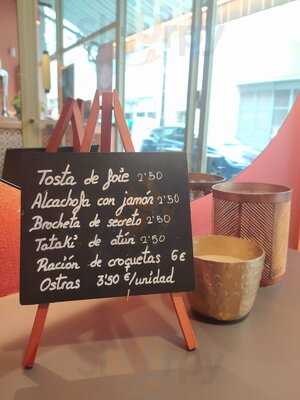 Tosta de foie 2'50
Alcachofa con jamón 2'50
Brocheta de secreto 2'50
Tataki de atún 2'50
Ración de croquetas 6€
Ostras 3'50 €/unidad